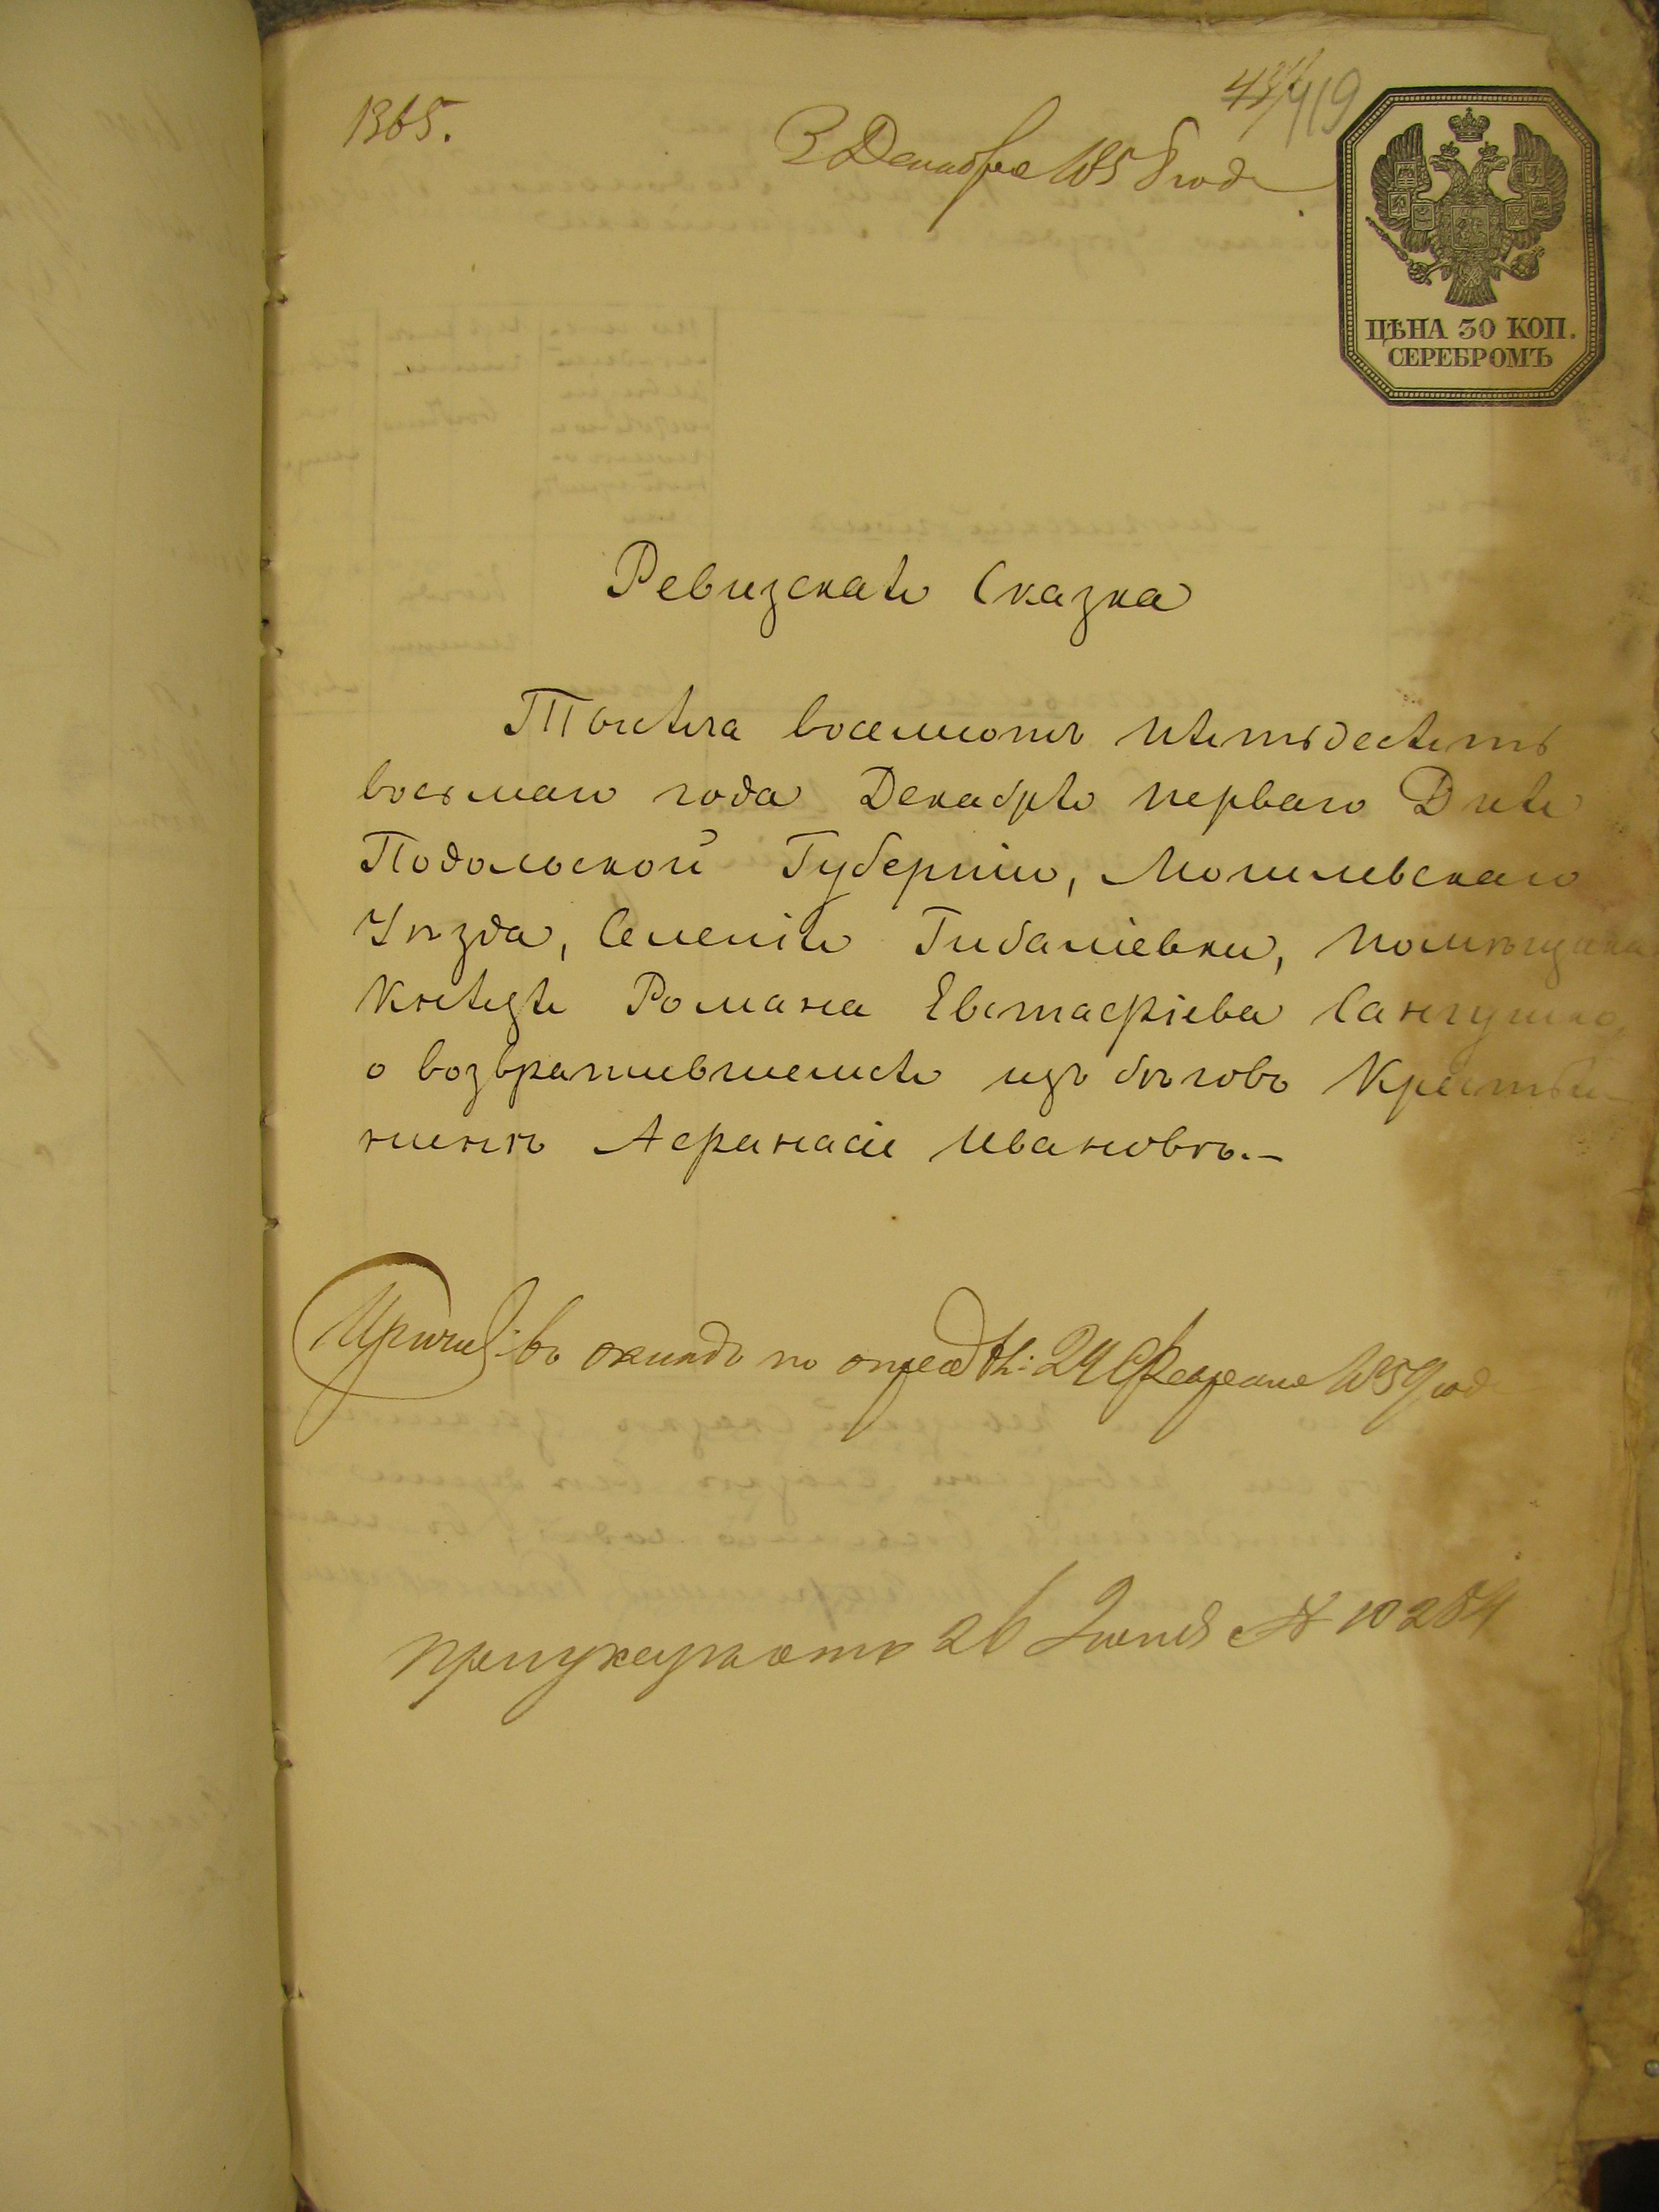 1365.
419
3 Декабря 1858 года
ЦѢНА 30 КОП.
СЕРЕБРОМЪ
Ревизская Сказка
Тысяча восемьсотъ пятьдесятъ
восьмаго года Декабря перваго Дня
Подольской Губерніи, Могилевскаго
Уѣзда, Селенія Гибаліевки, помѣщика
Князя Романа Евстафіева Сангушко,
о возвратившемся изъ бѣговъ Крестья-
нинѣ Афанасіе Ивановѣ.—
Причис: въ окладъ по опред 24 Февраля 1859 года
26 Іюня № 10284